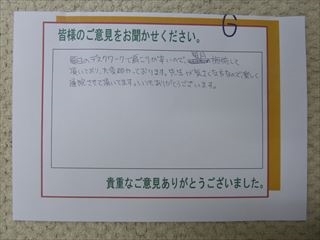 G
皆様のご意見をお聞かせください。
毎日のデスクワークで肩こりが辛いので、毎月施術して
頂いており、大変助かっております。先生が気さくな方なので楽しく
通院させて頂いてます。いつもありがとうございます。
貴重なご意見ありがとうございました。